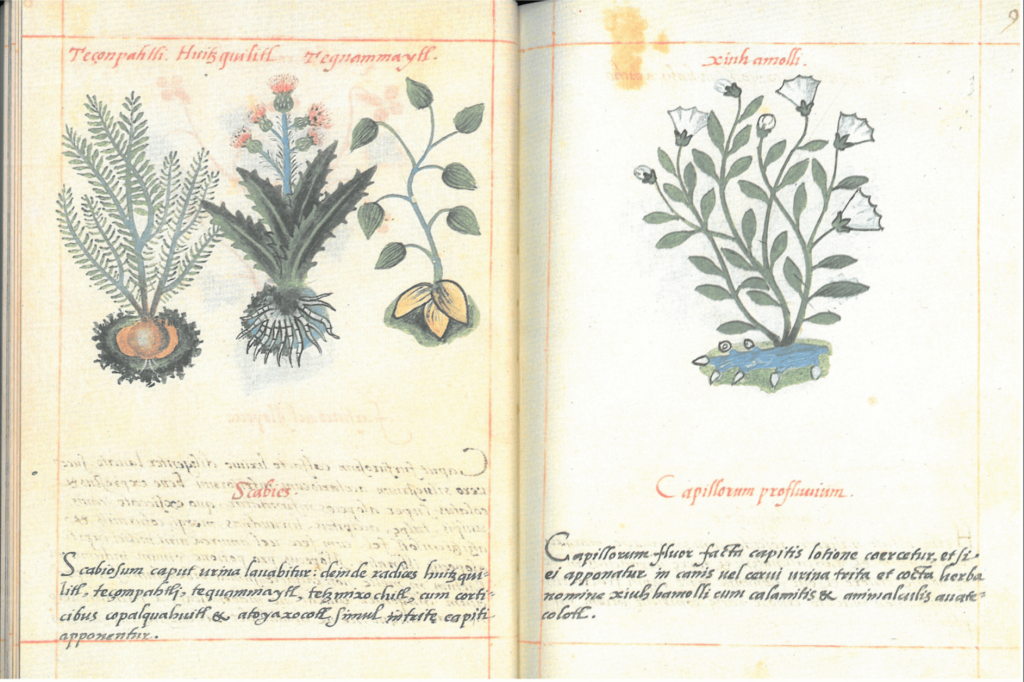 Teçonpahtli. Huitzquilitl Tequammaytl.
Scabies.
Scabiosum caput urina lauabitur: deinde radices huitzqui-
litl, teçonpahtli, tequammaytl, tetzmixochitl, cum corti-
cibus copalquahuitl & atoyaxocotl simul intritæ capiti
apponentur.
9
xiuh amolli.
Capillorum profluuium.
Capillorum fluor facta capitis lotione coercetur, et si
ei apponatur in canis uel cerui urina trita et cocta herba
nomine xiuhhamolli cum calamitis & animalculis auate-
colotl.